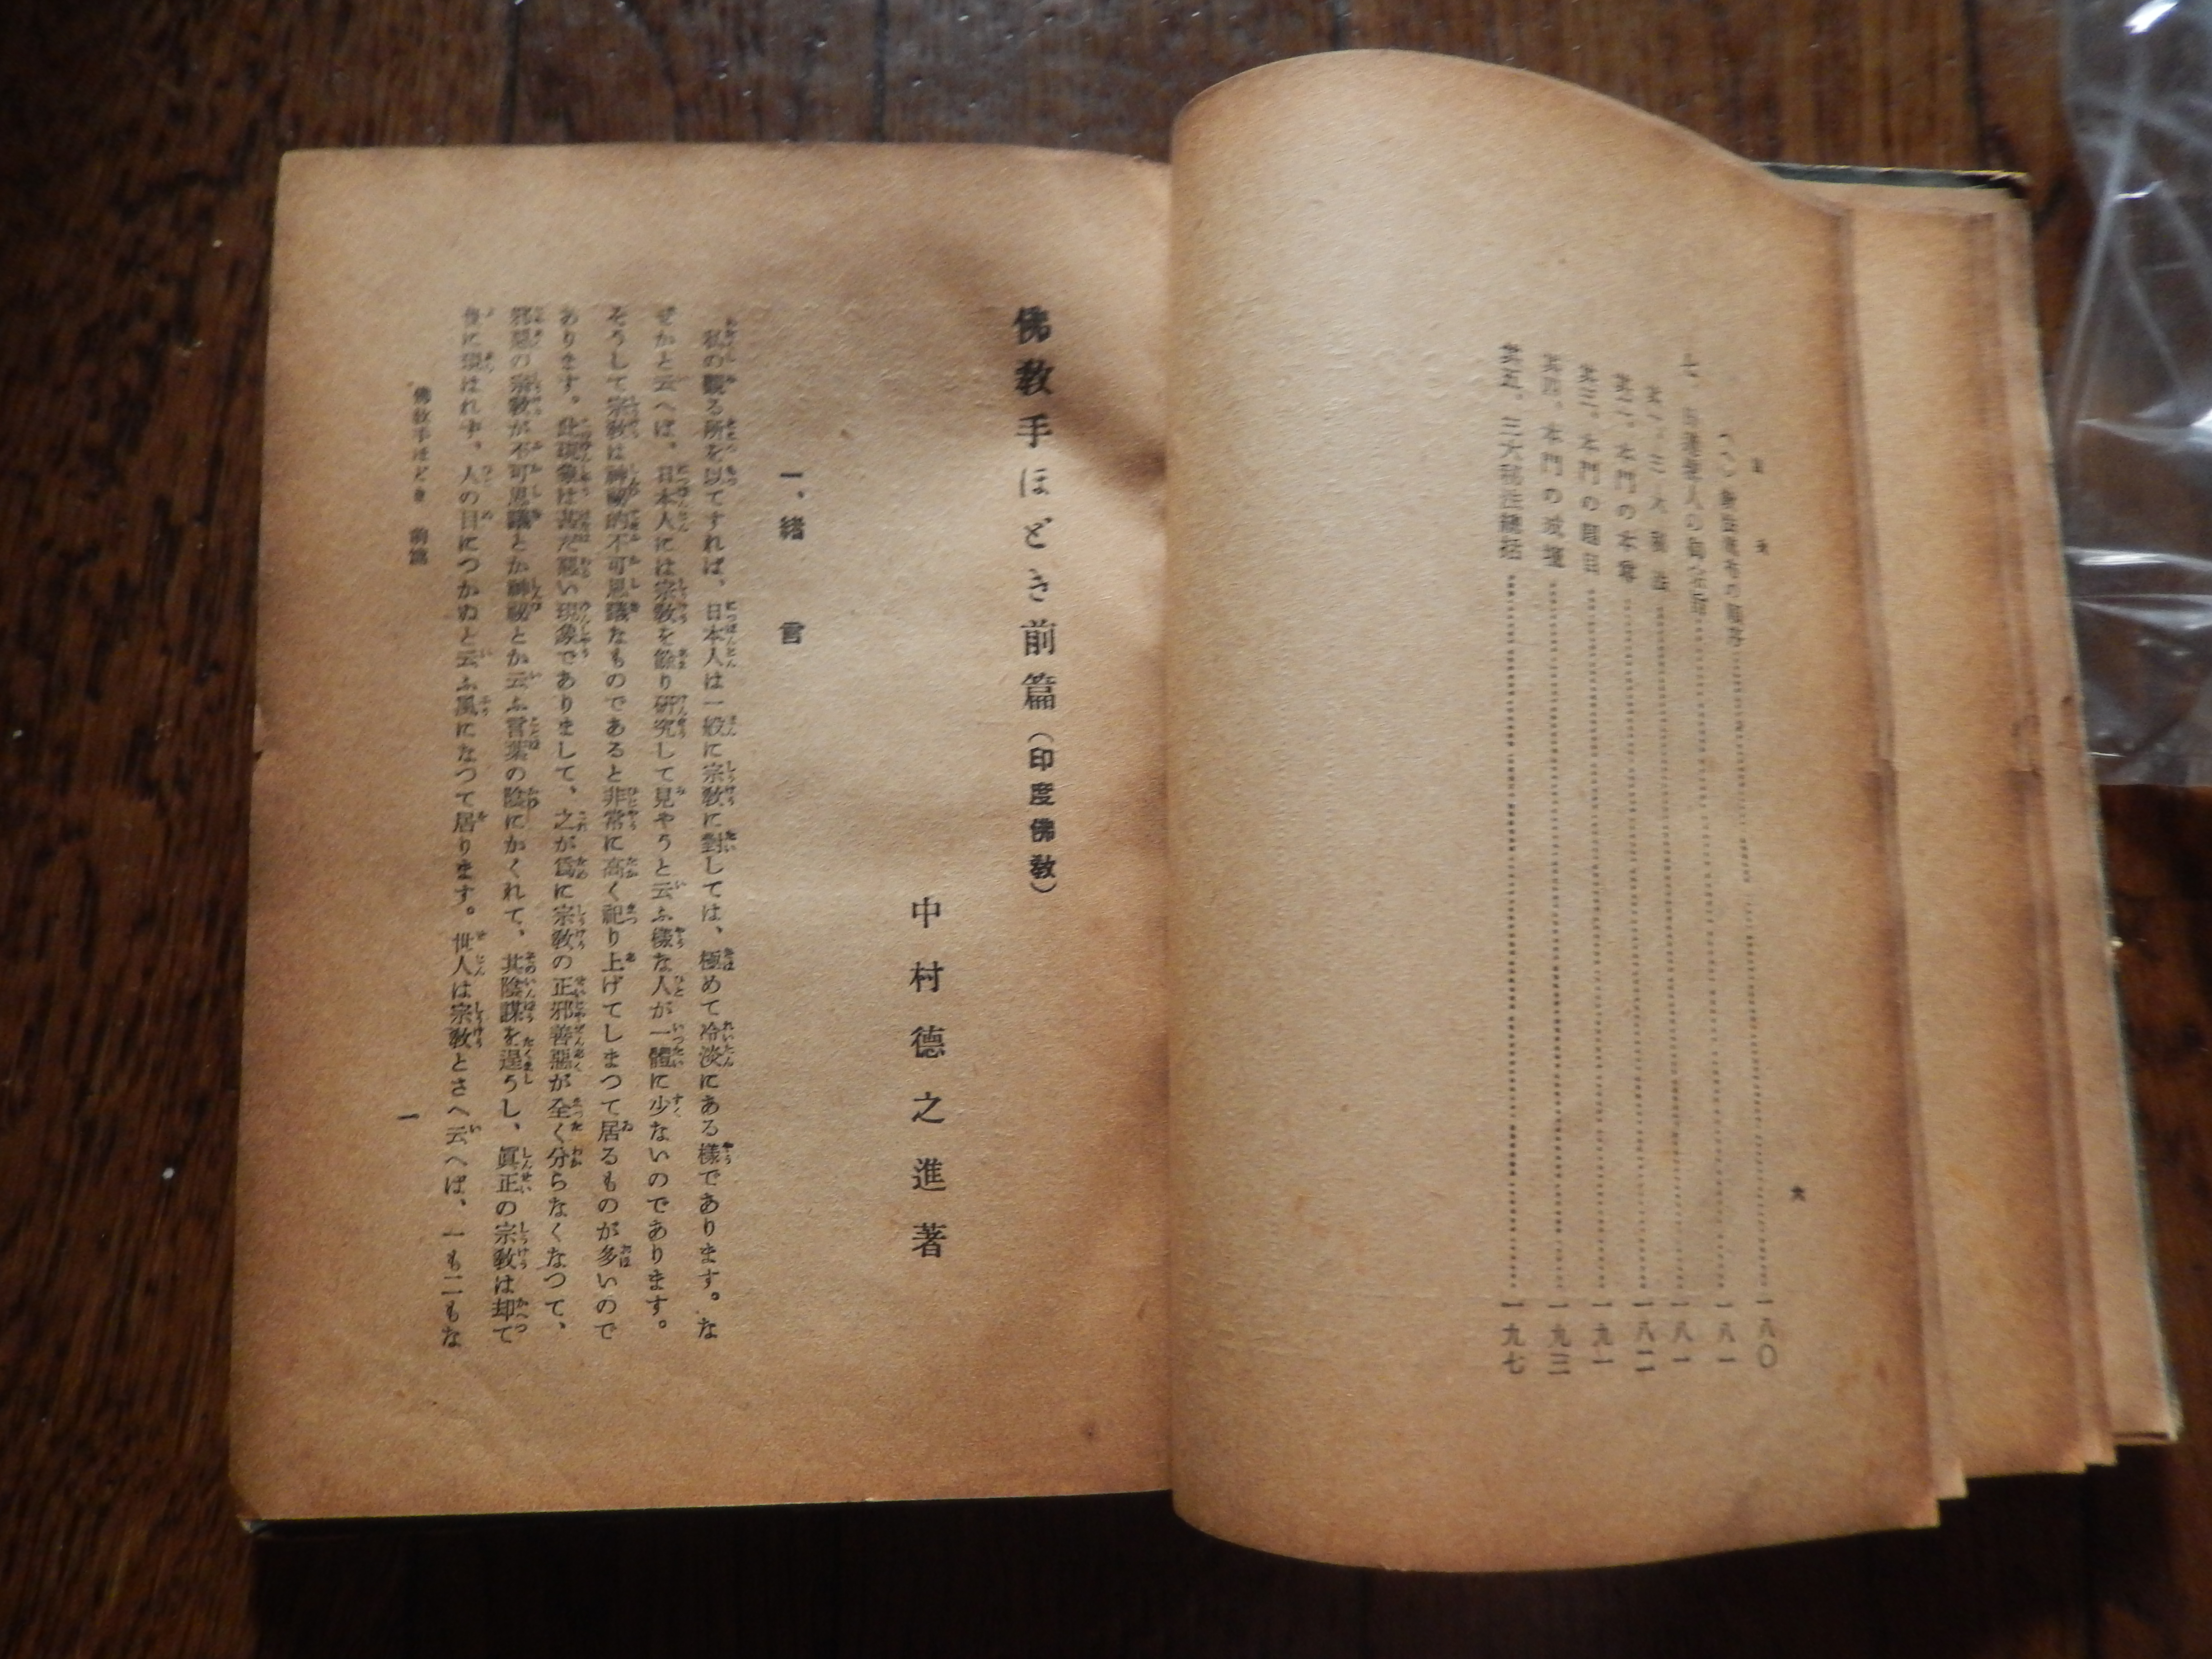 目次
六
(ヘ)
一八〇
七
一八一
其一。三大秘法
一八一
其二。本門の本尊
一八二
其三。本門の題目
一九一
其四。本門の戒壇
一九三
其五。三大秘法總括
一九七
佛教手ほどき前篇(印度佛教)
中村德之進著
一、緒言
私の觀る所を以てすれば、日本人は一般に宗教に對しては、極めて冷淡にある樣であります。な
ぜかと云へば、日本人には宗教を餘り研究して見やうと云ふ樣な人が一體に少ないのであります。
そうして宗教は神秘的不可思議なものであると非常に高く祀り上げてしまつて居るものが多いので
あります。此現象は甚だ惡い現象でありまして、之が爲に宗教の正邪善惡が全く分らなくなつて、
邪惡の宗教が不可思議とか神秘とか云ふ言葉の陰にかくれて、其陰謀を逞うし、眞正の宗教は却て
後に現はれず、人の目につかぬと云ふ風になつて居ります。世人は宗教とさへ云へば、一も二もな
佛教手ほどき 前篇
一